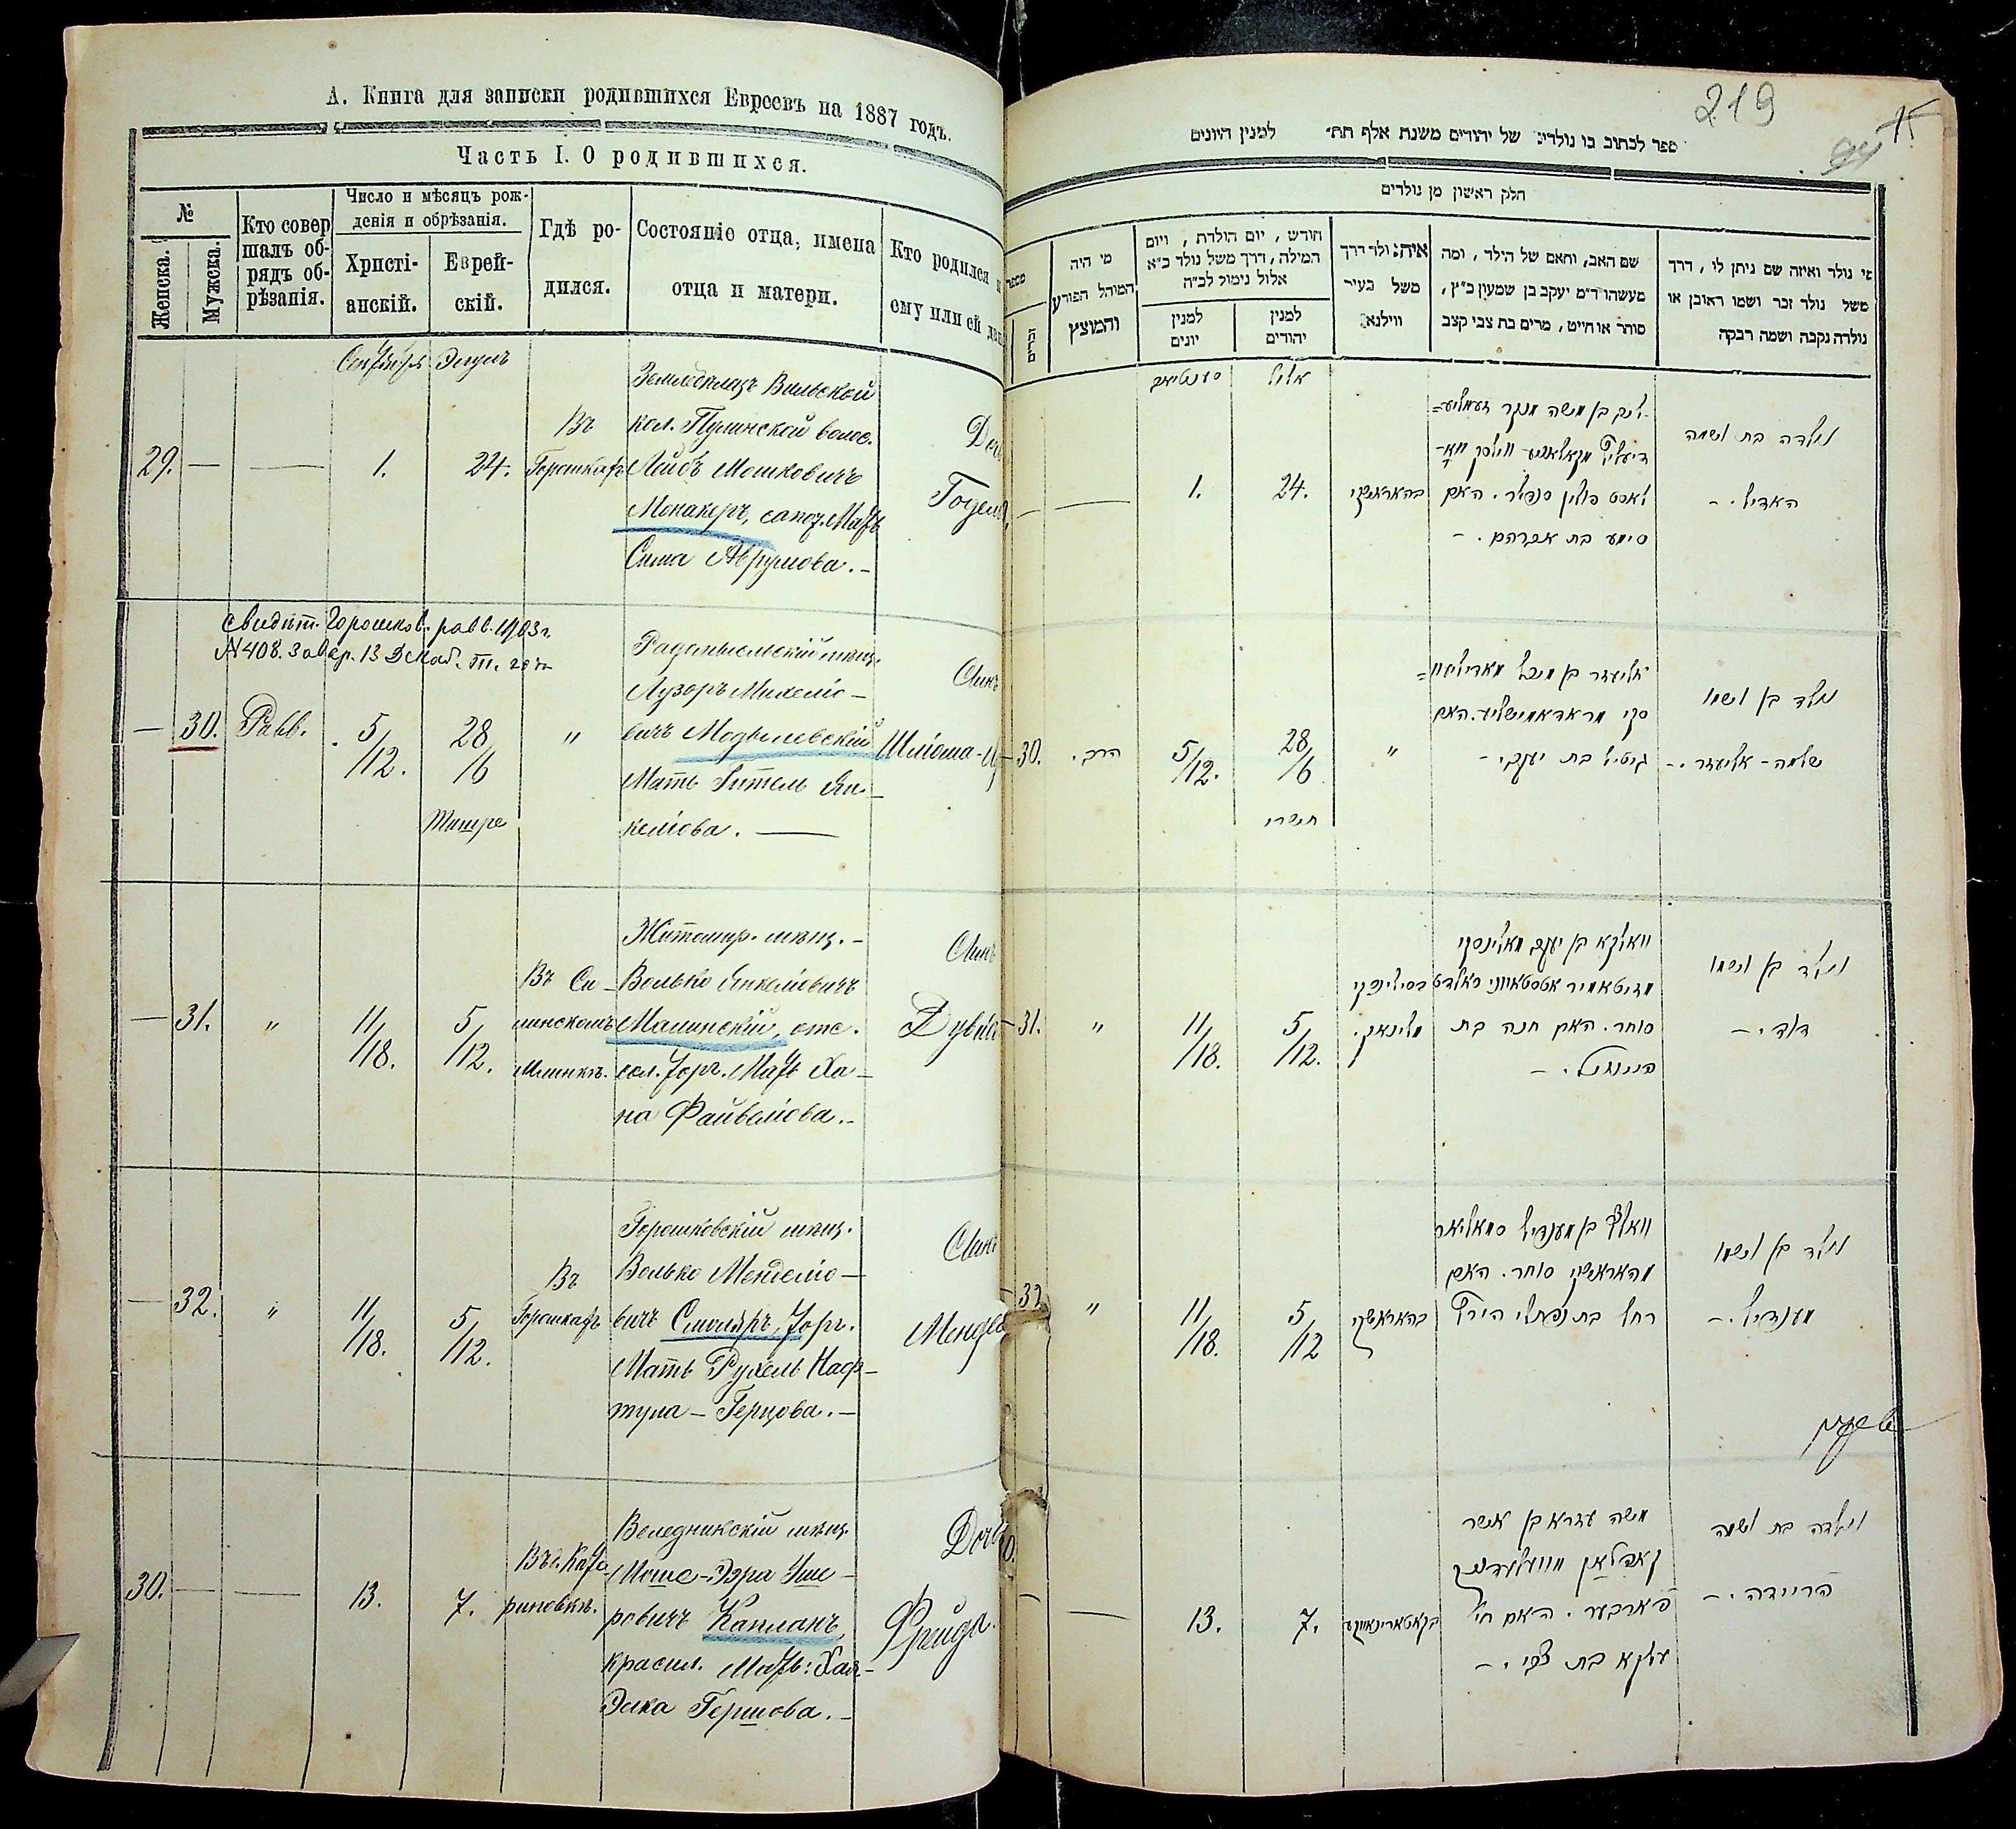 А. Книга для записки родившихся Евреевъ на 1887 годъ.
Часть I. О родившихся.
№
Женска.
Мужска.
Кто совер
шалъ об-
рядъ об-
рѣзанія.
Число и мѣсяцъ рож-
денія и обрѣзанія.
Христі-
анскій.
Еврей-
скій.
Гдѣ ро-
дился.
Состояніе отца, имена
отца и матери.
Кто родился и
ему или ей да
Сентябрь Элулъ
29. — — 1. 24.
Въ
Горошкахъ
Земледѣлецъ Вильской
кол. Пулинской волос.
Лейбъ Мошковичъ
Менакеръ, сапож. Мать
Сима Аврумова. -
Годель
Свидѣт. Горошков. равв. 1903 г.
№ 408. Завѣр. 13 Декаб. т. года
— 30. Равв. 5/12. 28/6 "
Тишре
Радомысльскій мѣщ.
Лузоръ Михеліо-
вичъ Модылевскій
Мать Гитель Ян-
келіова. —
Сынъ
Шліома-
— 31. " 11/18. 5/12.
Въ Си-
линскомъ
Млинкѣ.
Житомир. мѣщ. -
Волько Янкеліовичъ
Малинскій, отс.
сол. торг. Мать Ха-
на Файвеліова. -
Сынъ
Дувид
— 32. " 11/18. 5/12.
Въ
Горошкахъ
Горошковскій мѣщ.
Волько Менделіо-
вичъ Смоляръ, торг.
Мать Рухель Наф-
тула-Герцова. -
Сынъ
Мендел
30. — — 13. 7.
Въ с. Кате-
риновкѣ.
Веледникскій мѣщ.
Моше-Эзра Уше-
ровичъ Капланъ,
красил. Мать: Хая-
Элка Гершова. -
Дочь
Фрейда.
219
15
ספר לכתוב בו נולדים של יהודים משנת אלף תת״ למנין היונים
חלק ראשון מן נולדים
מספר
זכרים
מי היה
המוהל הפורע
והמוצץ
חודש, יום הולדת, ויום
המילה, דרך משל נולד כ״א
אלול נימול לכ״ה
למנין
יונים
למנין
יהודים
איה נולד דרך
משל בעיר
ווילנא
שם האב, והאם של הילד, ומה
מעשהו ד״מ יעקב בן שמעון כ״ץ,
סוחר או חייט, מרים בת צבי קצב
מי נולד ואיזה שם ניתן לו, דרך
משל נולד זכר ושמו ראובן או
נולדה נקבה ושמה רבקה
אלול
— — 1. 24. בהאראשקי
סימע בת אברהם. -
נולדה בת ושמה
האדיל. -
30. הרב. 5/12. 28/6 "
תשרי
אליעזר בן מיכל מאדילעוו=
סקי מראדאמישליע. האם
גיטיל בת יעקב. -
נולד בן ושמו
שלמה - אליעזר. -
31. " 11/18. 5/12.
וואלקא בן יעקב מאלינסקי
סוחר. האם חנה בת
נולד בן ושמו
דוד. -
32 " 11/18. 5/12 בהאראשקי
וואלף בן מענדיל סמאליאר
מהאראשקי סוחר. האם
רחל בת נפתלי הירץ
נולד בן ושמו
מענדיל. -
— 13. 7. בקאטארינאווקע
משה עזרא בן אשר
קאפלאן מוועלעדניק
פארבער. האם חי׳
עלקא בת צבי. -
נולדה בת ושמה
פריידה. -